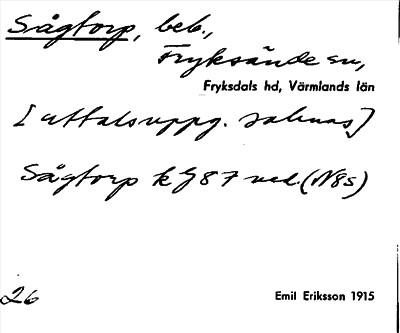 Sågtorp, beb.,
Fryksände sn,
Fryksdals hd, Värmlands län
[uttalsuppg. saknas]
Sågtorp k G87 ned. (N85)
26
Emil Eriksson 1915